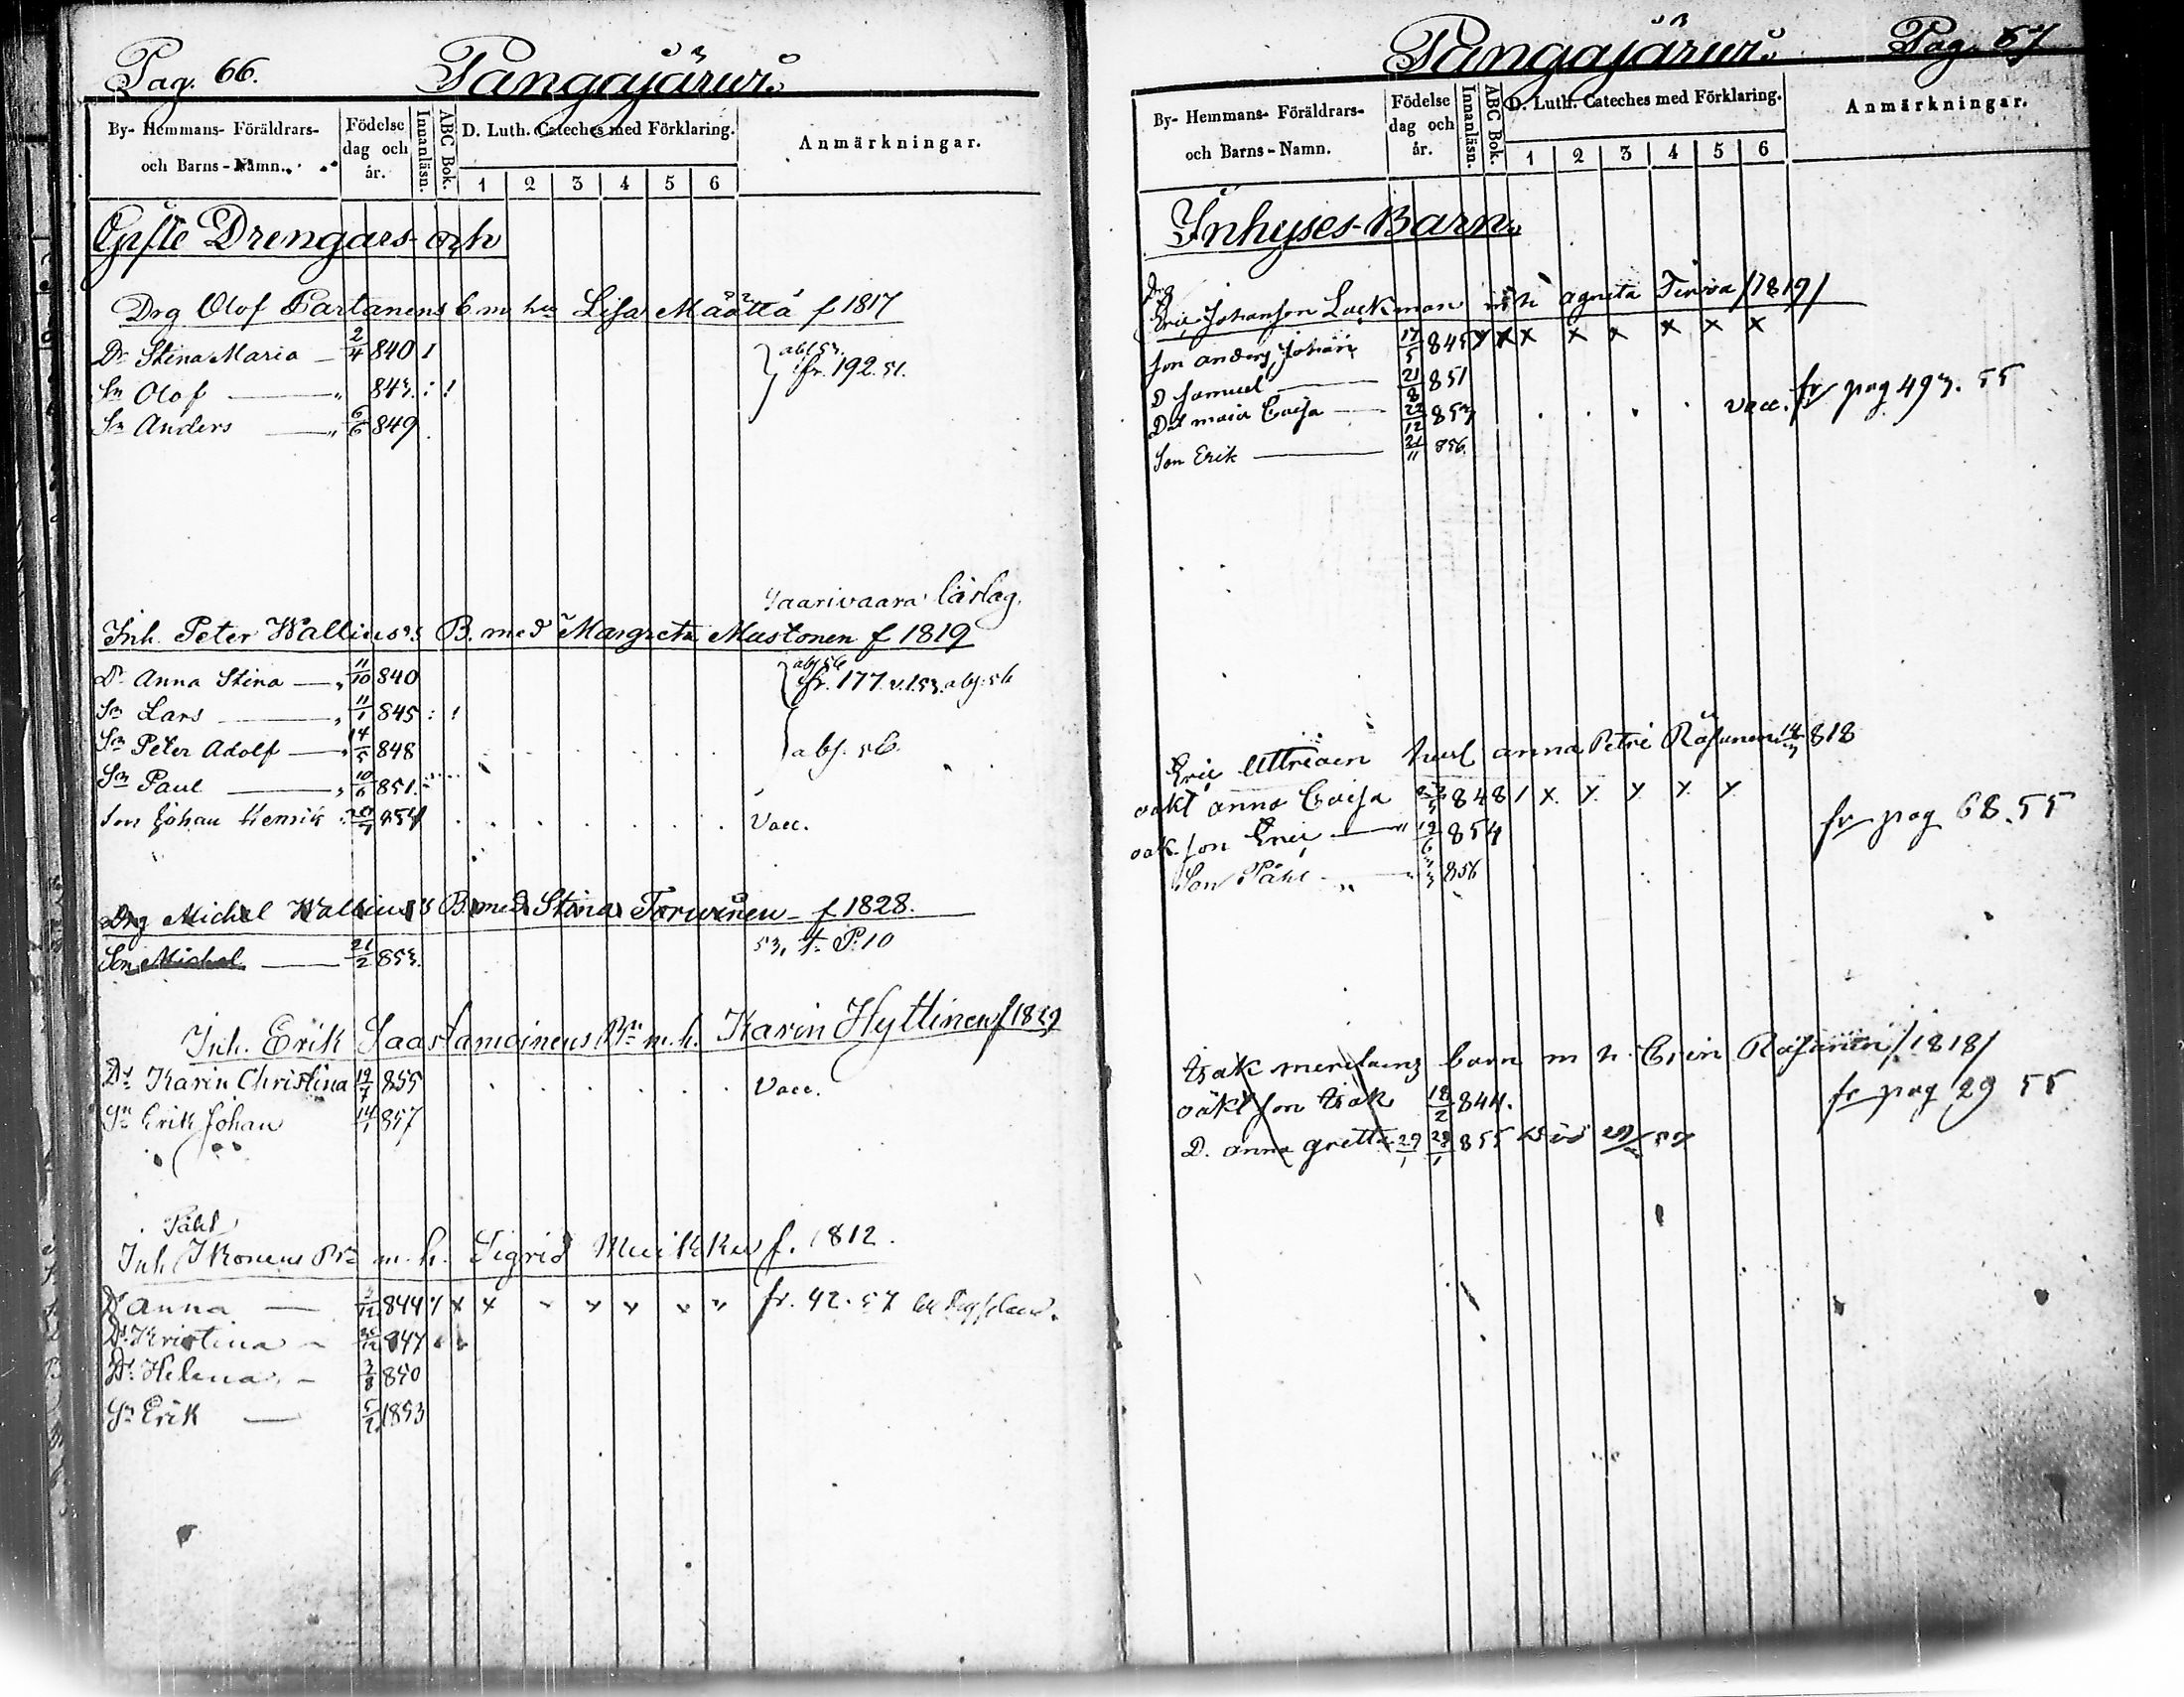 Pag. 66. Pangajärwi.
By- Hemmans- Föräldrars- och Barns-Namn. Födelse dag och år. Innanläsn. ABC Bok. D. Luth. Cateches med Förklaring. Anmärkningar.
1 2 3 4 5 6
Gifte Drengars- och
Drg Olof Partanens b. m hu Lisa Määttä f 1817
Dr Stina Maria — 2/4 840 1 abl 53. fr. 192. 51.
Sn Olof — " 843. : !
Sn Anders — " 6/6 849
Yaarivaara läslag.
Inh. Peter Wallius's B. med Margreta Mustonen f 1819
Dr Anna Stina — " 11/10 840 abf 56 fr. 177. v. 153. abf. 56
Sn Lars — " 11/1 845 : !
Sn Peter Adolf — " 14/5 848 abf. 56.
Sn Paul — " 10/6 851.
Son Johan Henrik 854 Vacc.
Drg Michel Wallius's B. med Stina Torwinen - f 1828.
Son Michel — 21/2 853. 53, t. P. 10
Inh. Erik Saastamoinens Bn m. h. Karin Hyttinen f 1829
Dr Karin Christina 19/7 855 Vacc.
Sn Erik Johan 14/1 857
Påhl
Inh Ikonens Brn m. h. Sigrid Muikku f. 1812.
Dr Anna — 3/12 844 x x x x x x fr. 42. 57
Dr Kristina — 847
Dr Helena — 3/8 850
Sn Erik — 5/2 1853
Pangajärwi. Pag. 67
By- Hemmans- Föräldrars- och Barns-Namn. Födelse dag och år. Innanläsn. ABC Bok. D. Luth. Cateches med Förklaring. Anmärkningar.
1 2 3 4 5 6
Inhyses-Barn.
Drg
Eric Johansson Lackman m h agneta Tervo /1819/
Son anders Johan 17/5 845 x x x x x x x x
D Samuel — 21/8 851
Dot maia Caisa — 22/12 853 vacc. fr pag 493. 55
Son Erik — 21/11 856.
Eric Uttriain hust anna Petri Räsunen 818
oäkt anna Caisa 848 1 x. x. x x x
oäk. son Eric — " 19/6 854 fr pag 68. 55
Son Påhl — " 856
Isak merilains barn m h. Carin Räsunen /1818/
oäkt son Isak 18/2 844. fr pag 29 55
D. anna gretta 29/1 29/1 855 död 57